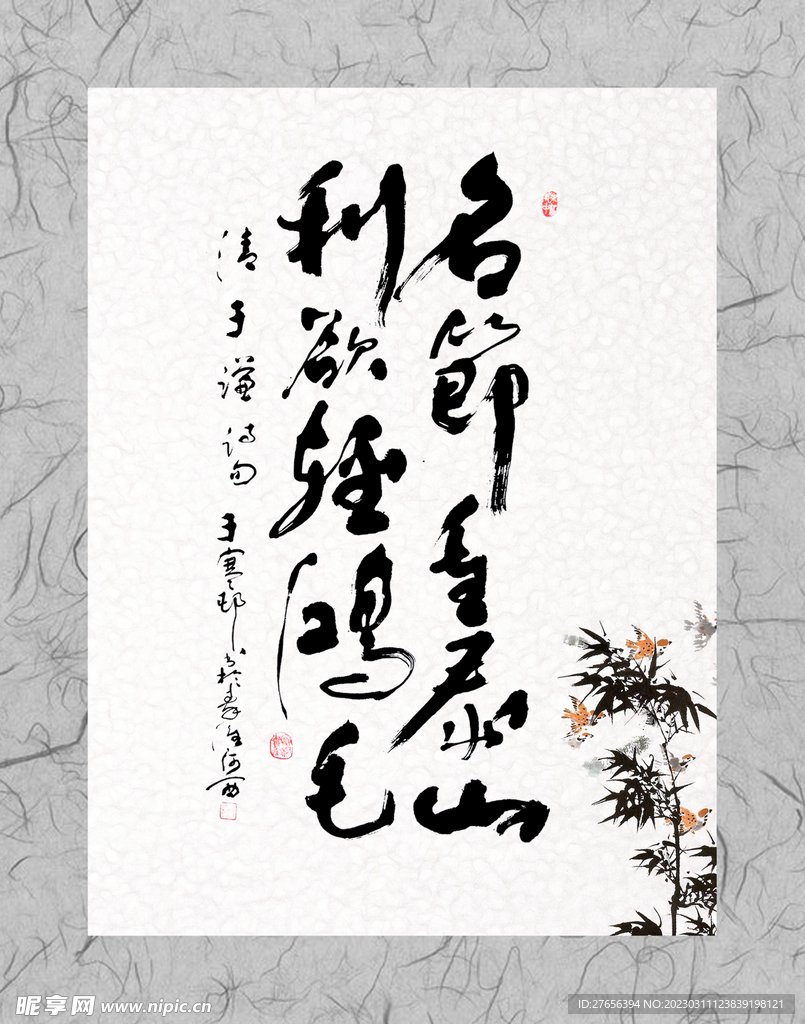 名節重泰山
利欲輕鴻毛
清于謙詩句
于寒邨书於
昵享网 www.nipic.cn
ID:27656394 NO:20230311123839198121